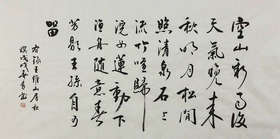 空山新雨後
天氣晚来
秋明月松間
照清泉石上
流竹喧歸
浣女蓮動下
漁舟隨意春
芳歇王孫自可
留
王維山居秋
暝戊戌